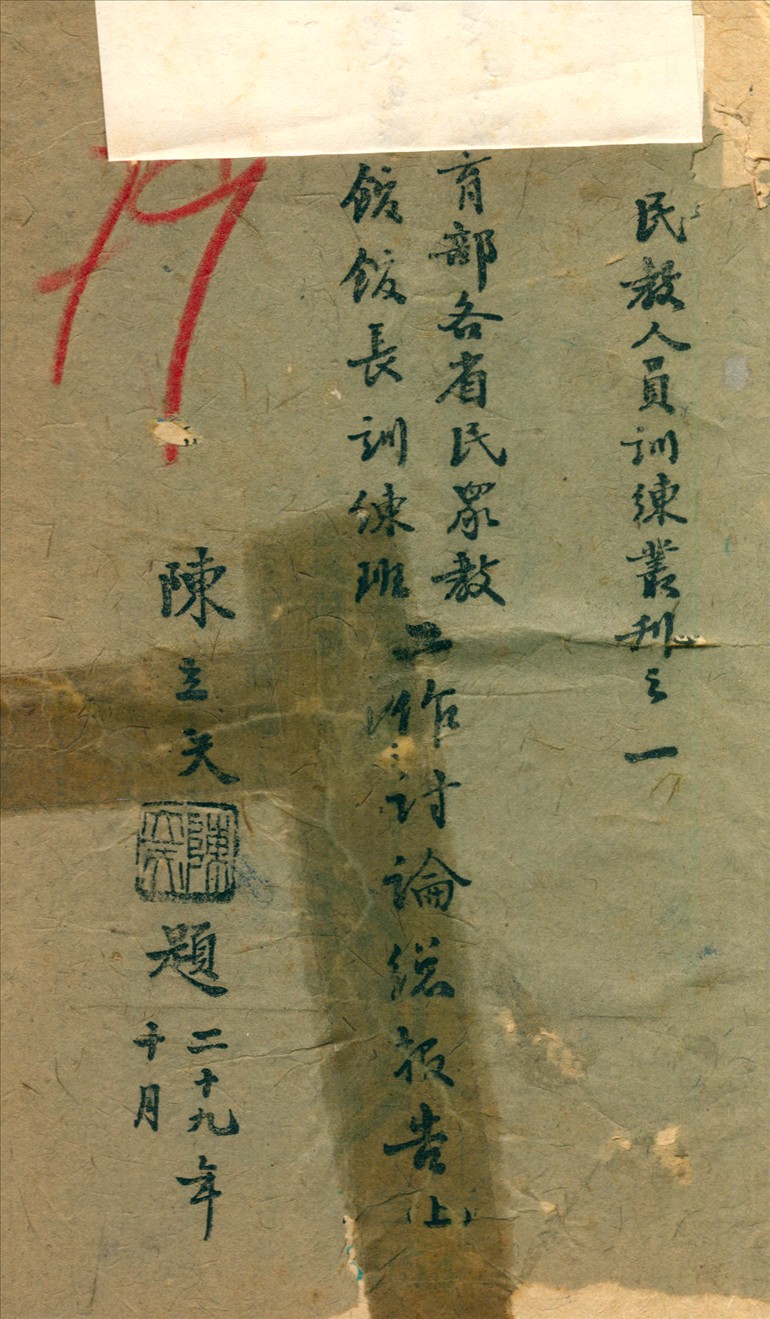 民教人員訓練叢刊之一
育部各省民眾教
館館長訓練班
工作討論總報告(上)
陳立夫題
二十九年
十月